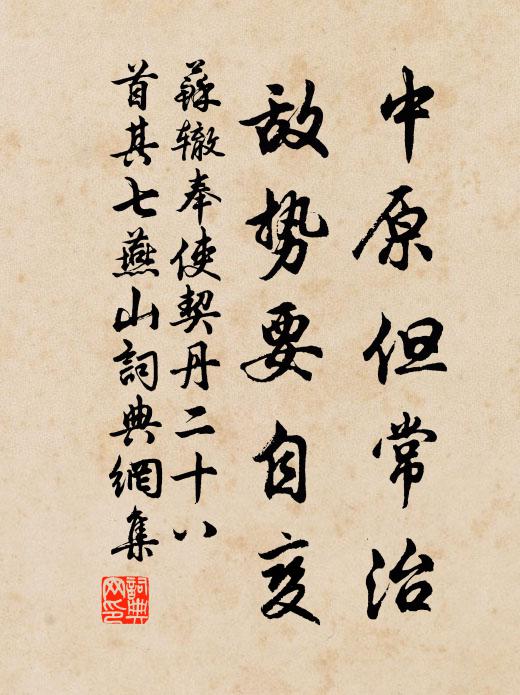 中原但常治
敌势要自变
蘇辙奉使契丹二十八
首其七燕山詞典網集
詞典网印